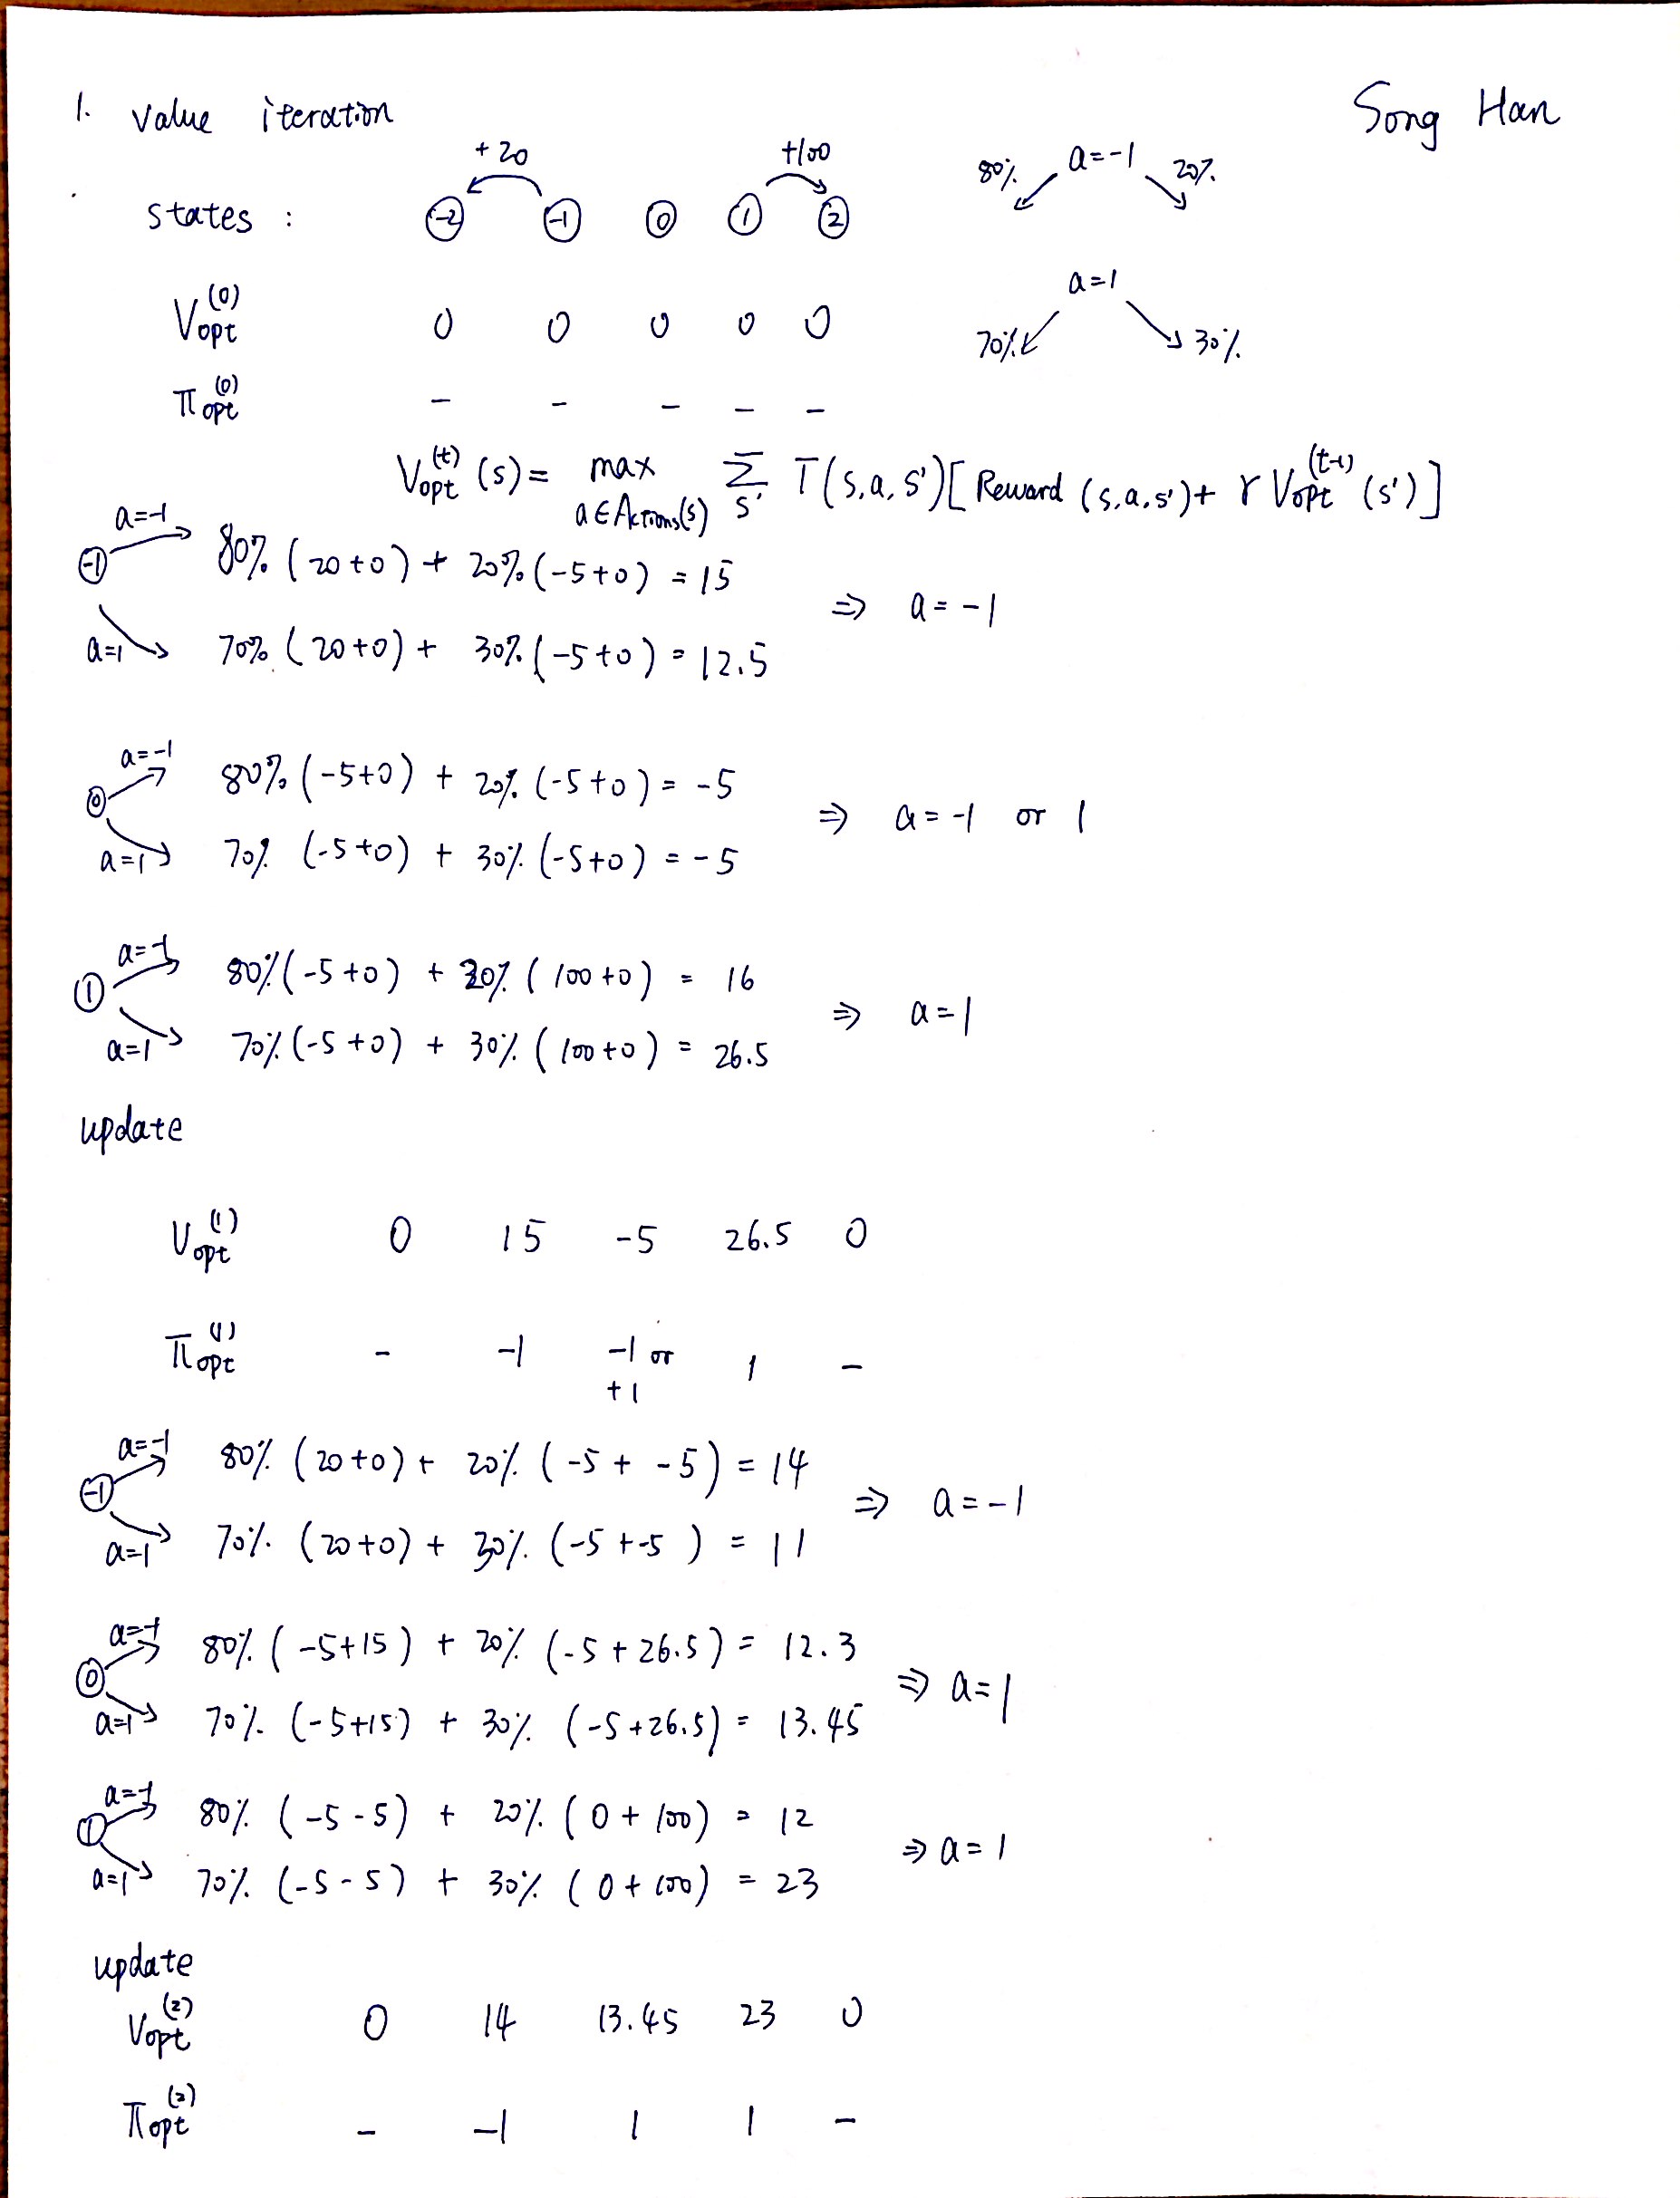 1. value iteration
Song Han
+20 +100
states : -2 -1 0 1 2
80% a=-1 20%
V_opt^(0) 0 0 0 0 0
a=1
70% 30%
π_opt^(0) - - - - -
V_opt^(t) (s) = max_{a∈Actions(s)} Σ_{s'} T(s,a,s')[Reward (s,a,s') + γ V_opt^(t-1) (s')]
-1 a=-1 80% (20+0) + 20% (-5+0) = 15
⇒ a = -1
a=1 70% (20+0) + 30% (-5+0) = 12.5
0 a=-1 80% (-5+0) + 20% (-5+0) = -5
⇒ a = -1 or 1
a=1 70% (-5+0) + 30% (-5+0) = -5
1 a=-1 80% (-5+0) + 20% (100+0) = 16
⇒ a = 1
a=1 70% (-5+0) + 30% (100+0) = 26.5
update
V_opt^(1) 0 15 -5 26.5 0
π_opt^(1) - -1 -1 or +1 1 -
-1 a=-1 80% (20+0) + 20% (-5 + -5) = 14
⇒ a = -1
a=1 70% (20+0) + 30% (-5 + -5) = 11
0 a=-1 80% (-5+15) + 20% (-5+26.5) = 12.3
⇒ a = 1
a=1 70% (-5+15) + 30% (-5+26.5) = 13.45
1 a=-1 80% (-5-5) + 20% (0+100) = 12
⇒ a = 1
a=1 70% (-5-5) + 30% (0+100) = 23
update
V_opt^(2) 0 14 13.45 23 0
π_opt^(2) - -1 1 1 -